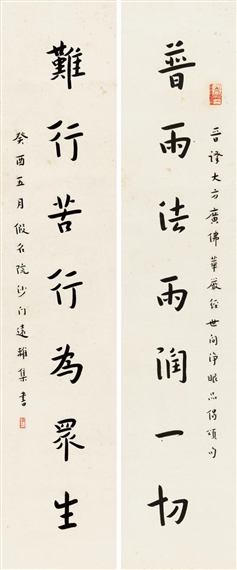 普雨法雨潤一切
晉譯大方廣佛華嚴經世間淨眼品偈頌句
難行苦行為眾生
癸酉五月假名院沙門遠雜集書